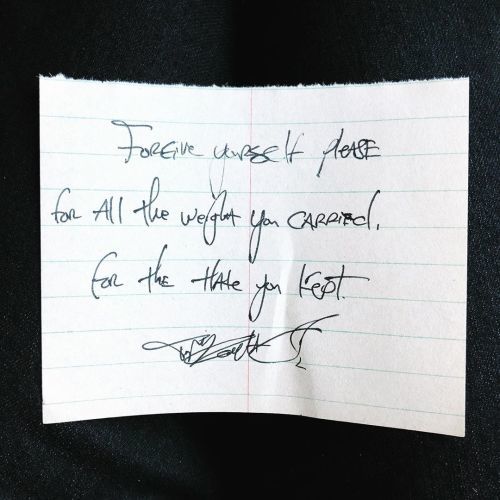 Forgive yourself please
for All the weight you CARRied.
for the Hate you Kept.